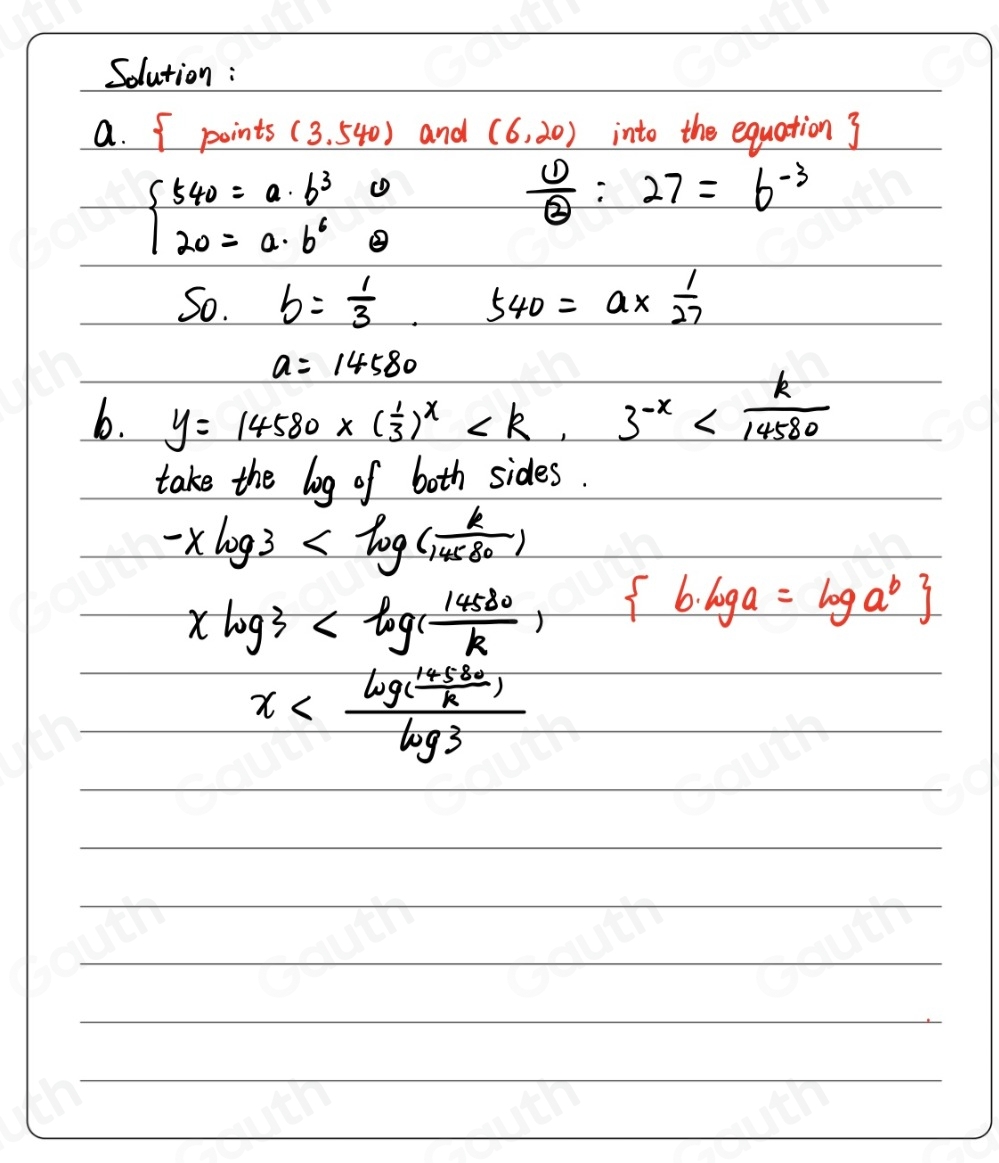 Solution :
a. { points (3.540) and (6,20) into the equation }
{ 540 = a · b³ ① ①/② : 27 = b⁻³
20 = a · b⁶ ②
So. b = 1/3 . 540 = a × 1/27
a = 14580
b. y = 14580 × (1/3)ˣ < k , 3⁻ˣ < k/14580
take the log of both sides .
-x log3 < log(k/14580)
x log3 < log(14580/k) { b·loga = logaᵇ }
x < log(14580/k)/log3